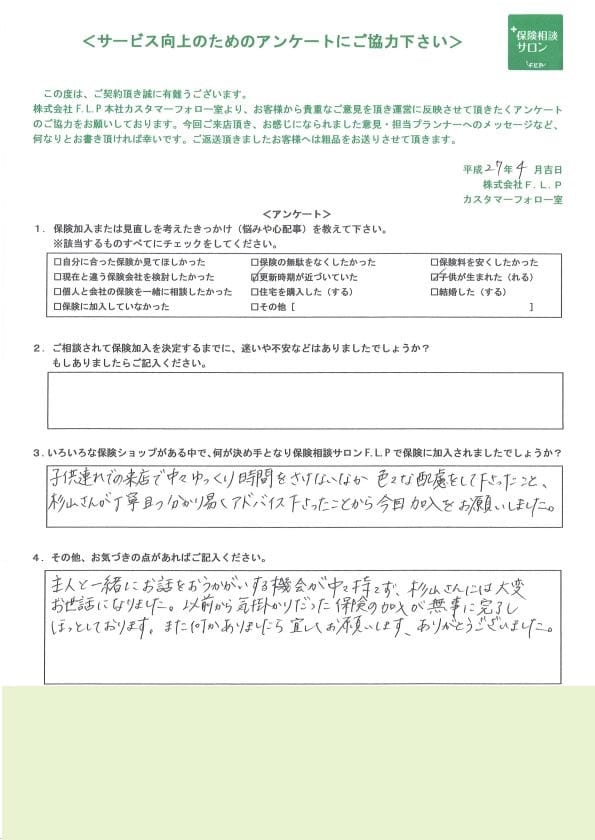 ＜サービス向上のためのアンケートにご協力下さい＞
保険相談
サロン
F.L.P
この度は、ご契約頂き誠に有難うございます。
株式会社F.L.P本社カスタマーフォロー室より、お客様から貴重なご意見を頂き運営に反映させて頂きたくアンケート
のご協力をお願いしております。今回ご来店頂き、お感じになられました意見・担当プランナーへのメッセージなど、
何なりとお書き頂ければ幸いです。ご返送頂きましたお客様へは粗品をお送りさせて頂きます。
平成27年4月吉日
株式会社F.L.P
カスタマーフォロー室
＜アンケート＞
1．保険加入または見直しを考えたきっかけ（悩みや心配事）を教えて下さい。
※該当するものすべてにチェックをしてください。
□自分に合った保険か見てほしかった □保険の無駄をなくしたかった □保険料を安くしたかった
□現在と違う保険会社を検討したかった ☑更新時期が近づいていた ☑子供が生まれた（れる）
□個人と会社の保険を一緒に相談したかった □住宅を購入した（する） □結婚した（する）
□保険に加入していなかった □その他［ ］
2．ご相談されて保険加入を決定するまでに、迷いや不安などはありましたでしょうか？
もしありましたらご記入ください。
3．いろいろな保険ショップがある中で、何が決め手となり保険相談サロンF.L.Pで保険に加入されましたでしょうか？
子供連れでの来店で中々ゆっくり時間をさけないなか 色々な配慮をして下さったこと、
杉山さんが丁寧且つ分かり易くアドバイス下さったことから今回加入をお願いしました。
4．その他、お気づきの点があればご記入ください。
主人と一緒にお話をおうかがいする機会が中々持てず、杉山さんには大変
お世話になりました。以前から気掛かりだった保険の加入が無事に完了し
ほっとしております。また何かありましたら宜しくお願いします、ありがとうございました。